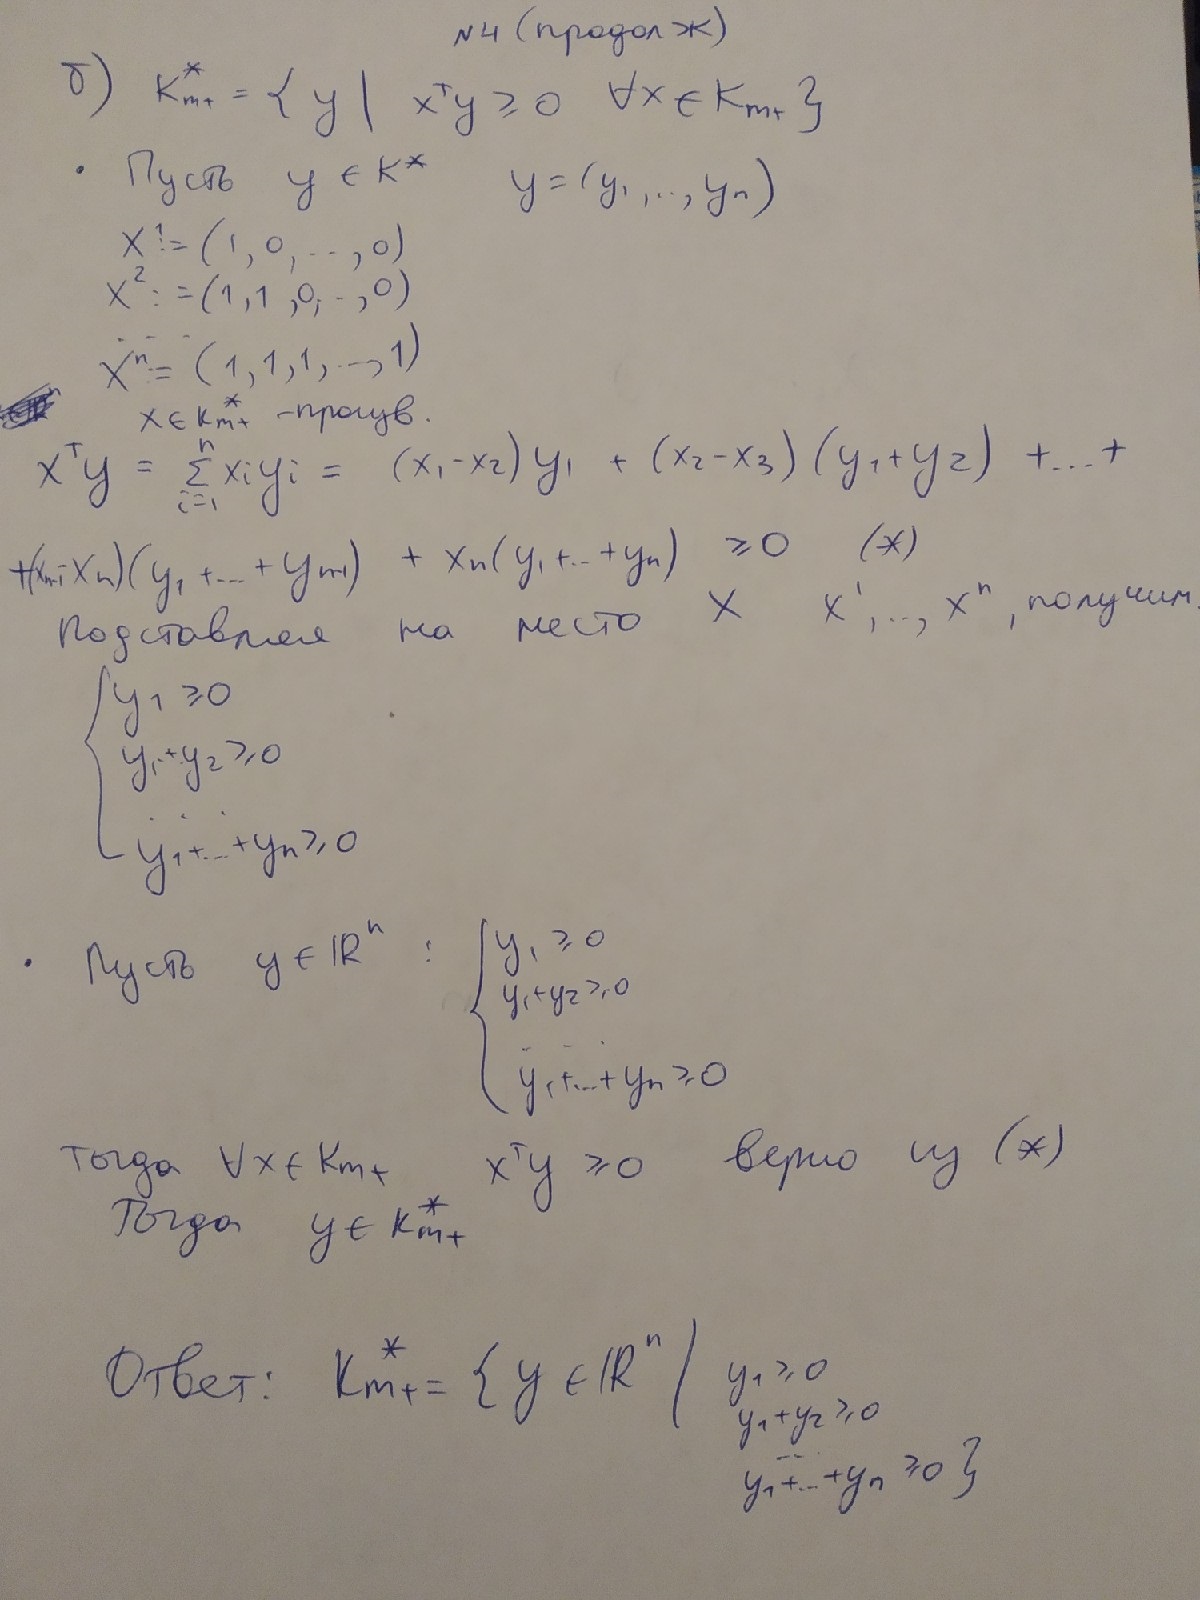 N4 (продолж)
б) K*m+ = { y | xᵀy ≥ 0 ∀x ∈ Km+ }
• Пусть y ∈ K* y = (y₁, .., yₙ)
x¹ := (1, 0, ..., 0)
x² := (1, 1, 0, .., 0)
. . . .
xⁿ := (1, 1, 1, ..., 1)
x ∈ K*m+ -
xᵀy = Σⁿᵢ₌₁ xᵢyᵢ = (x₁-x₂)y₁ + (x₂-x₃)(y₁+y₂) +...+
+(xₙ₋₁-xₙ)(y₁+...+yₙ₋₁) + xₙ(y₁+...+yₙ) ≥ 0 (*)
Подставляя на место x x¹, .., xⁿ, получим:
{ y₁ ≥ 0
y₁+y₂ ≥ 0
. . .
y₁+...+yₙ ≥ 0
• Пусть y ∈ ℝⁿ : { y₁ ≥ 0
y₁+y₂ ≥ 0
. . . .
y₁+...+yₙ ≥ 0
тогда ∀x ∈ Km+ xᵀy ≥ 0 верно из (*)
Тогда y ∈ K*m+
Ответ: K*m+ = { y ∈ ℝⁿ | y₁ ≥ 0
y₁+y₂ ≥ 0
...
y₁+...+yₙ ≥ 0 }